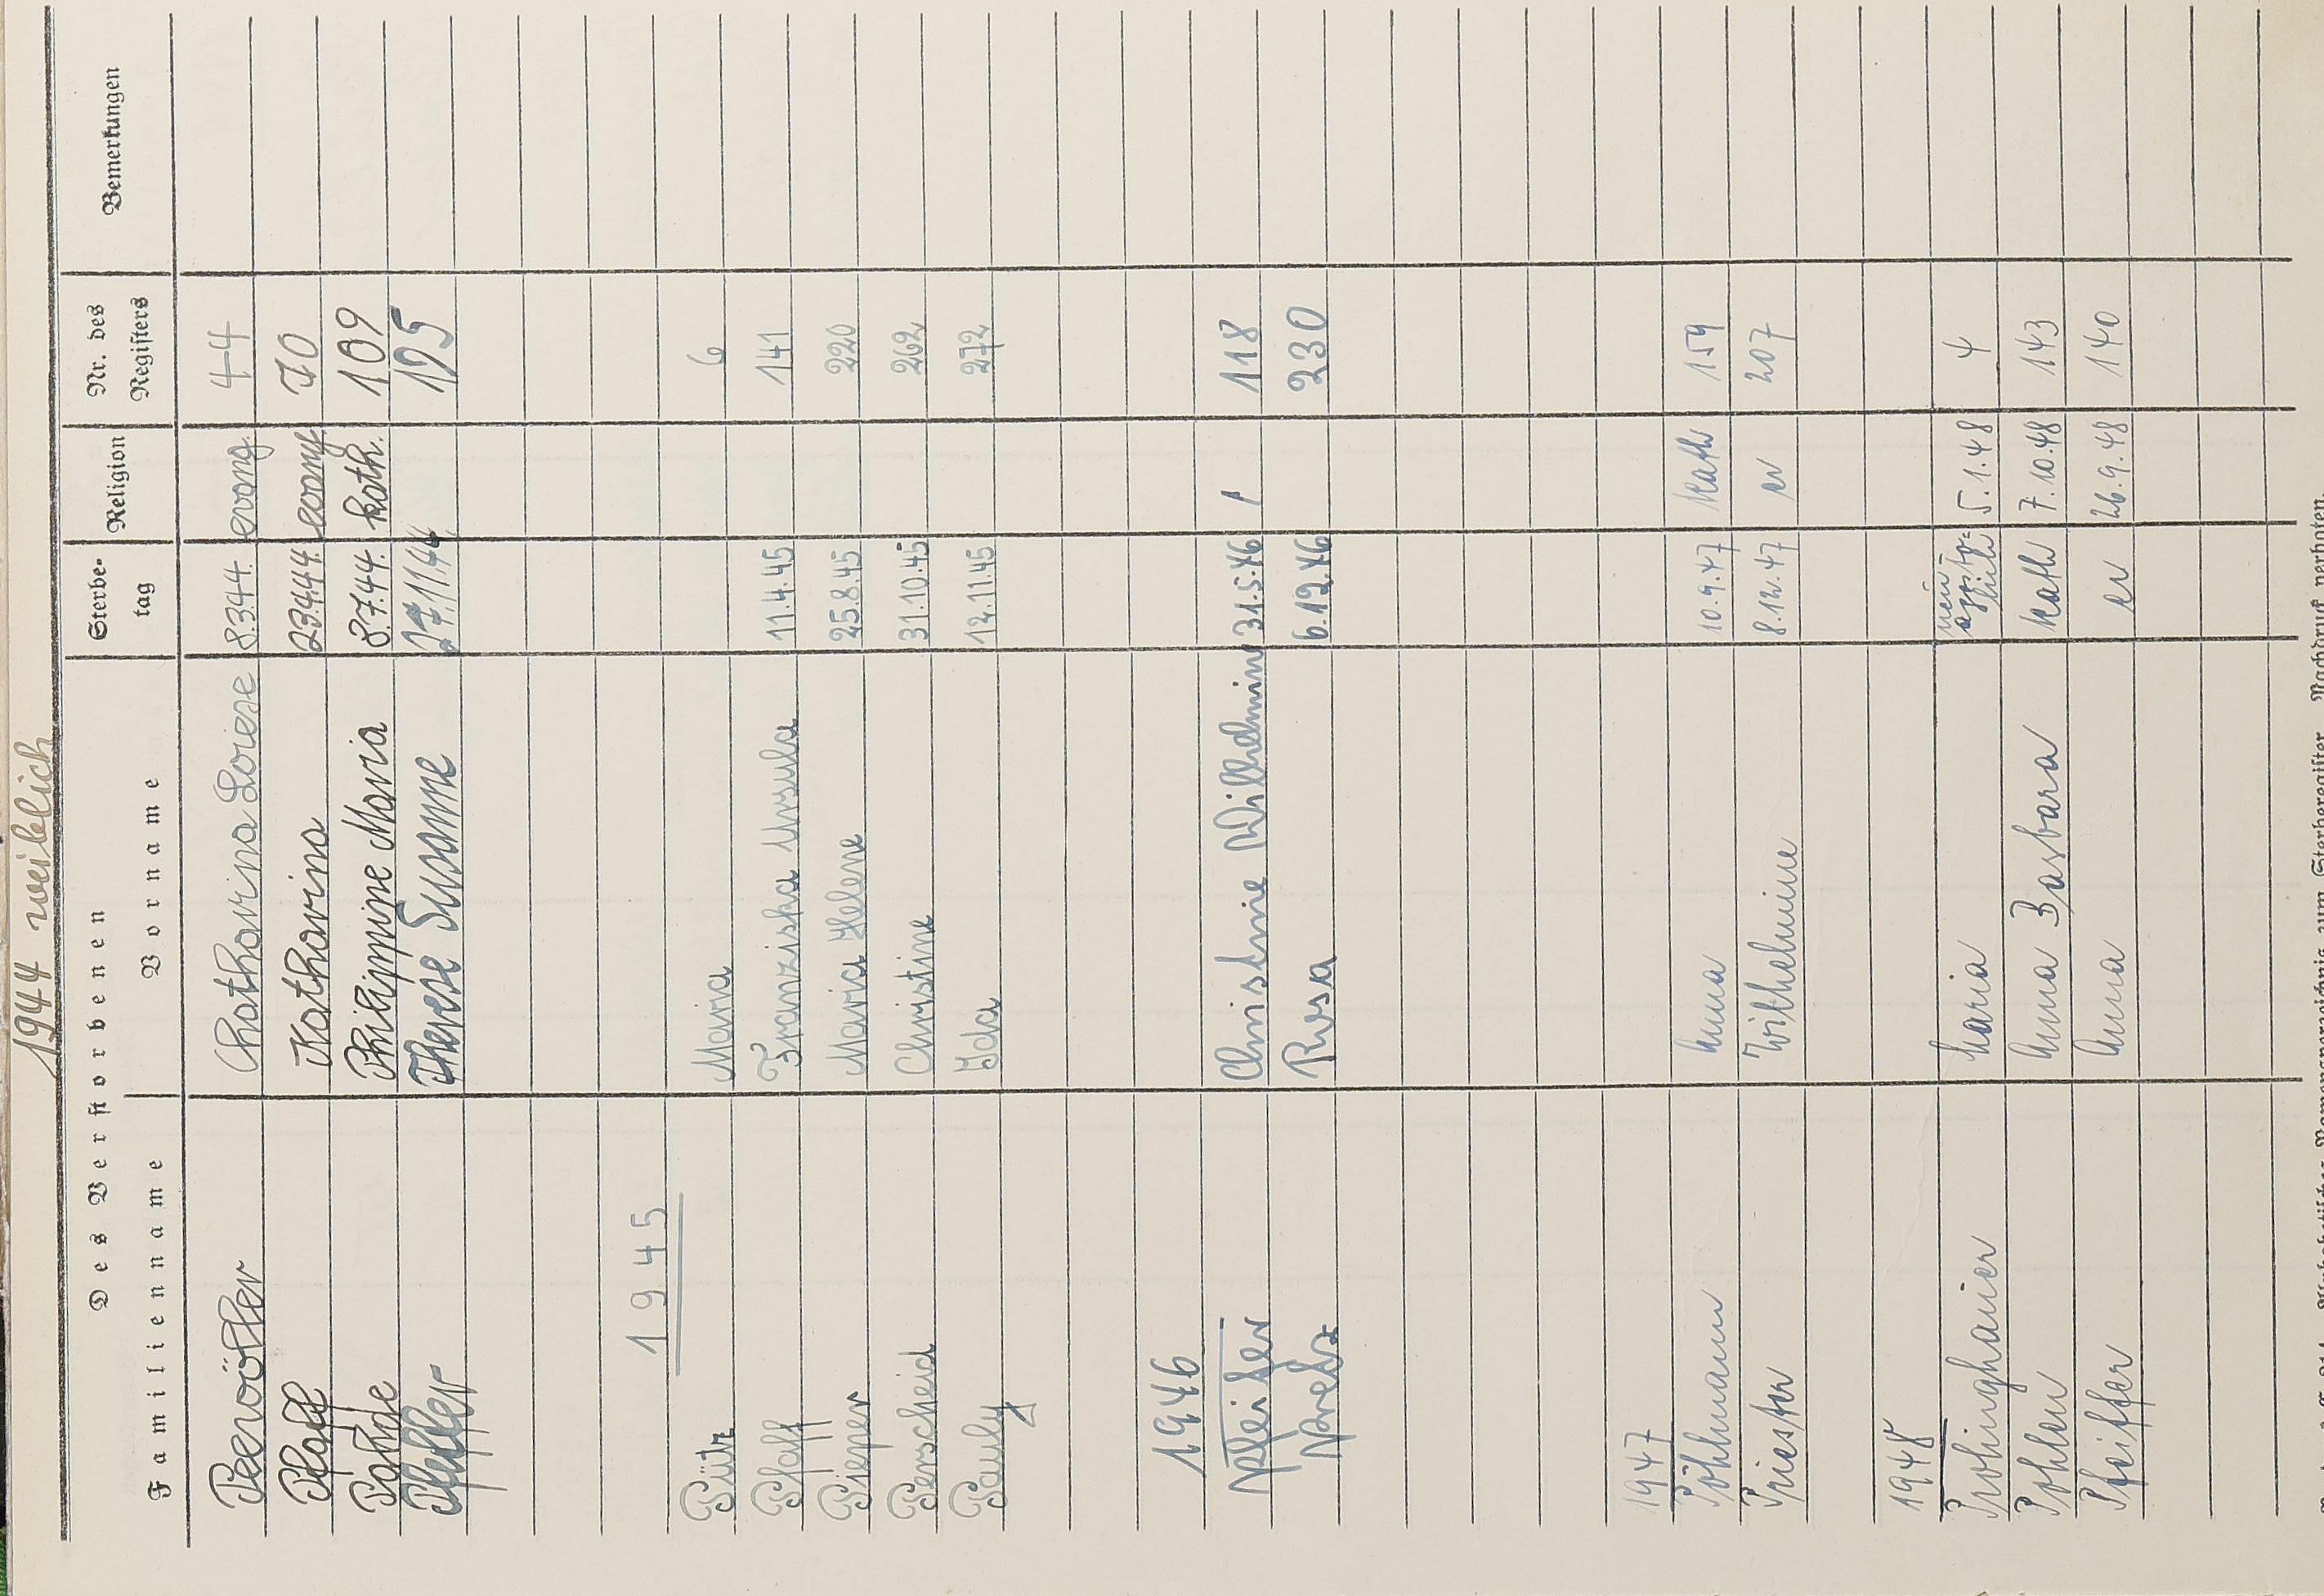 1944 weiblich
Des Verstorbenen
Familienname Vorname Sterbe-tag Religion Nr. des Registers Bemerkungen
Peervöller Chatharina Loiese 8.3.44. evang. 44
Pfaff Katharina 23.4.44. evang 70
Pahde Philippine Maria 8.7.44. kath. 109
Pfeiffer Therese Susanne 27.11.44. 195
1945
Pütz Maria 6
Pfaff Franziska Ursula 11.4.45 141
Pieper Maria Helene 25.8.45 220
Perscheid Christine 31.10.45 262
Pauly Ida 12.11.45 272
1946
Pfeifer Christine Wilhelmine 31.5.46 / 118
Rosa 6.12.46 230
1947
Pöhlmann Anna 10.9.47 kath 159
Priester Wilhelmine 8.12.47 ev 207
1948
Prohinghauer Maria neu-aposto-lisch 5.1.48 4
Pohlen Anna Barbara kath 7.10.48 143
Pfeiffer Anna ev 26.9.48 140
Nachdruck verboten.